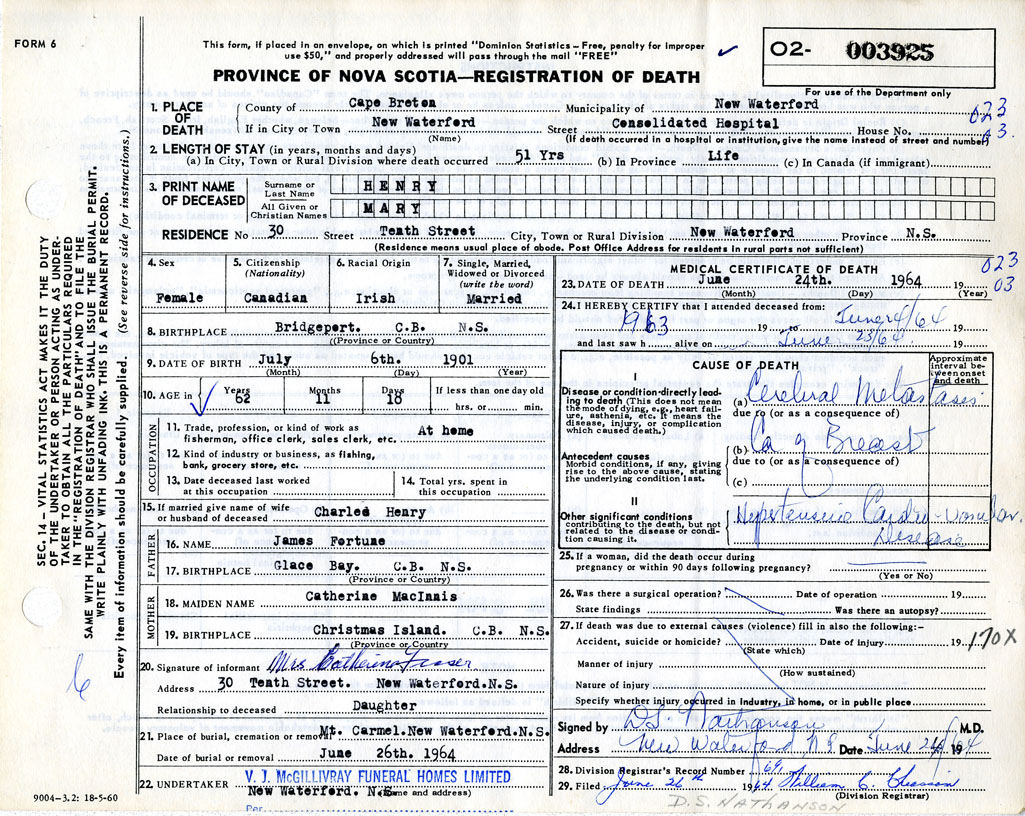 FORM 6
This form, if placed in an envelope, on which is printed "Dominion Statistics – Free, penalty for improper
use $50," and properly addressed will pass through the mail "FREE"
O2- 003925
For use of the Department only
PROVINCE OF NOVA SCOTIA—REGISTRATION OF DEATH
1. PLACE OF DEATH
County of Cape Breton Municipality of New Waterford
If in City or Town New Waterford Street Consolidated Hospital House No.
(Name) (If death occurred in a hospital or institution, give the name instead of street and number)
023
03.
2. LENGTH OF STAY (in years, months and days)
(a) In City, Town or Rural Division where death occurred 51 Yrs (b) In Province Life (c) In Canada (if immigrant)
3. PRINT NAME OF DECEASED
Surname or Last Name HENRY
All Given or Christian Names MARY
RESIDENCE No 30 Street Tenth Street City, Town or Rural Division New Waterford Province N.S.
(Residence means usual place of abode. Post Office Address for residents in rural parts not sufficient)
4. Sex Female
5. Citizenship (Nationality) Canadian
6. Racial Origin Irish
7. Single, Married, Widowed or Divorced (write the word) Married
8. BIRTHPLACE Bridgeport. C.B. N.S.
(Province or Country)
9. DATE OF BIRTH July 6th. 1901
(Month) (Day) (Year)
10. AGE in Years 62 Months 11 Days 18 If less than one day old
hrs. or min.
OCCUPATION
11. Trade, profession, or kind of work as
fisherman, office clerk, sales clerk, etc. At home
12. Kind of industry or business, as fishing,
bank, grocery store, etc.
13. Date deceased last worked
at this occupation
14. Total yrs. spent in
this occupation
15. If married give name of wife
or husband of deceased Charles Henry
FATHER
16. NAME James Fortune
17. BIRTHPLACE Glace Bay. C.B. N.S.
(Province or Country)
MOTHER
18. MAIDEN NAME Catherine MacInnis
19. BIRTHPLACE Christmas Island. C.B. N.S.
(Province or Country)
20. Signature of informant Mrs Catherine Fraser
Address 30 Tenth Street. New Waterford.N.S.
Relationship to deceased Daughter
21. Place of burial, cremation or removal Mt. Carmel.New Waterford.N.S.
Date of burial or removal June 26th. 1964
22. UNDERTAKER V. J. McGILLIVRAY FUNERAL HOMES LIMITED
New Waterford. N.S. (Name and address)
Per
9004-3.2: 18-5-60
MEDICAL CERTIFICATE OF DEATH
023
03
23. DATE OF DEATH June 24th. 1964 19
(Month) (Day) (Year)
24. I HEREBY CERTIFY that I attended deceased from:
1963 19 to June 24/64 19
and last saw h alive on June 23/64 19
CAUSE OF DEATH
Approximate interval between onset and death
I
Disease or condition directly leading to death (This does not mean the mode of dying, e.g., heart failure, asthenia, etc. It means the disease, injury, or complication which caused death.)
(a) Cerebral Metastases
due to (or as a consequence of)
Antecedent causes
Morbid conditions, if any, giving rise to the above cause, stating the underlying condition last.
(b) Ca of Breast
due to (or as a consequence of)
(c)
II
Other significant conditions
contributing to the death, but not related to the disease or condition causing it.
Hypertensive Cardio-Vascular
Disease
25. If a woman, did the death occur during
pregnancy or within 90 days following pregnancy?
(Yes or No)
26. Was there a surgical operation? Date of operation 19
State findings Was there an autopsy?
27. If death was due to external causes (violence) fill in also the following:-
Accident, suicide or homicide? Date of injury 19
(State which)
170X
Manner of injury
(How sustained)
Nature of injury
Specify whether injury occurred in industry, in home, or in public place
Signed by D.S. Nathanson M.D.
Address New Waterford NS Date June 24/64 19
28. Division Registrar's Record Number 69
29. Filed June 26th 1964 William C.
(Division Registrar)
D.S. NATHANSON
SEC. 14 – VITAL STATISTICS ACT MAKES IT THE DUTY
OF THE UNDERTAKER OR PERSON ACTING AS UNDER-
TAKER TO OBTAIN ALL THE PARTICULARS REQUIRED
IN THE "REGISTRATION OF DEATH" AND TO FILE THE
SAME WITH THE DIVISION REGISTRAR WHO SHALL ISSUE THE BURIAL PERMIT.
WRITE PLAINLY WITH UNFADING INK. THIS IS A PERMANENT RECORD.
Every item of information should be carefully supplied. (See reverse side for instructions.)
6